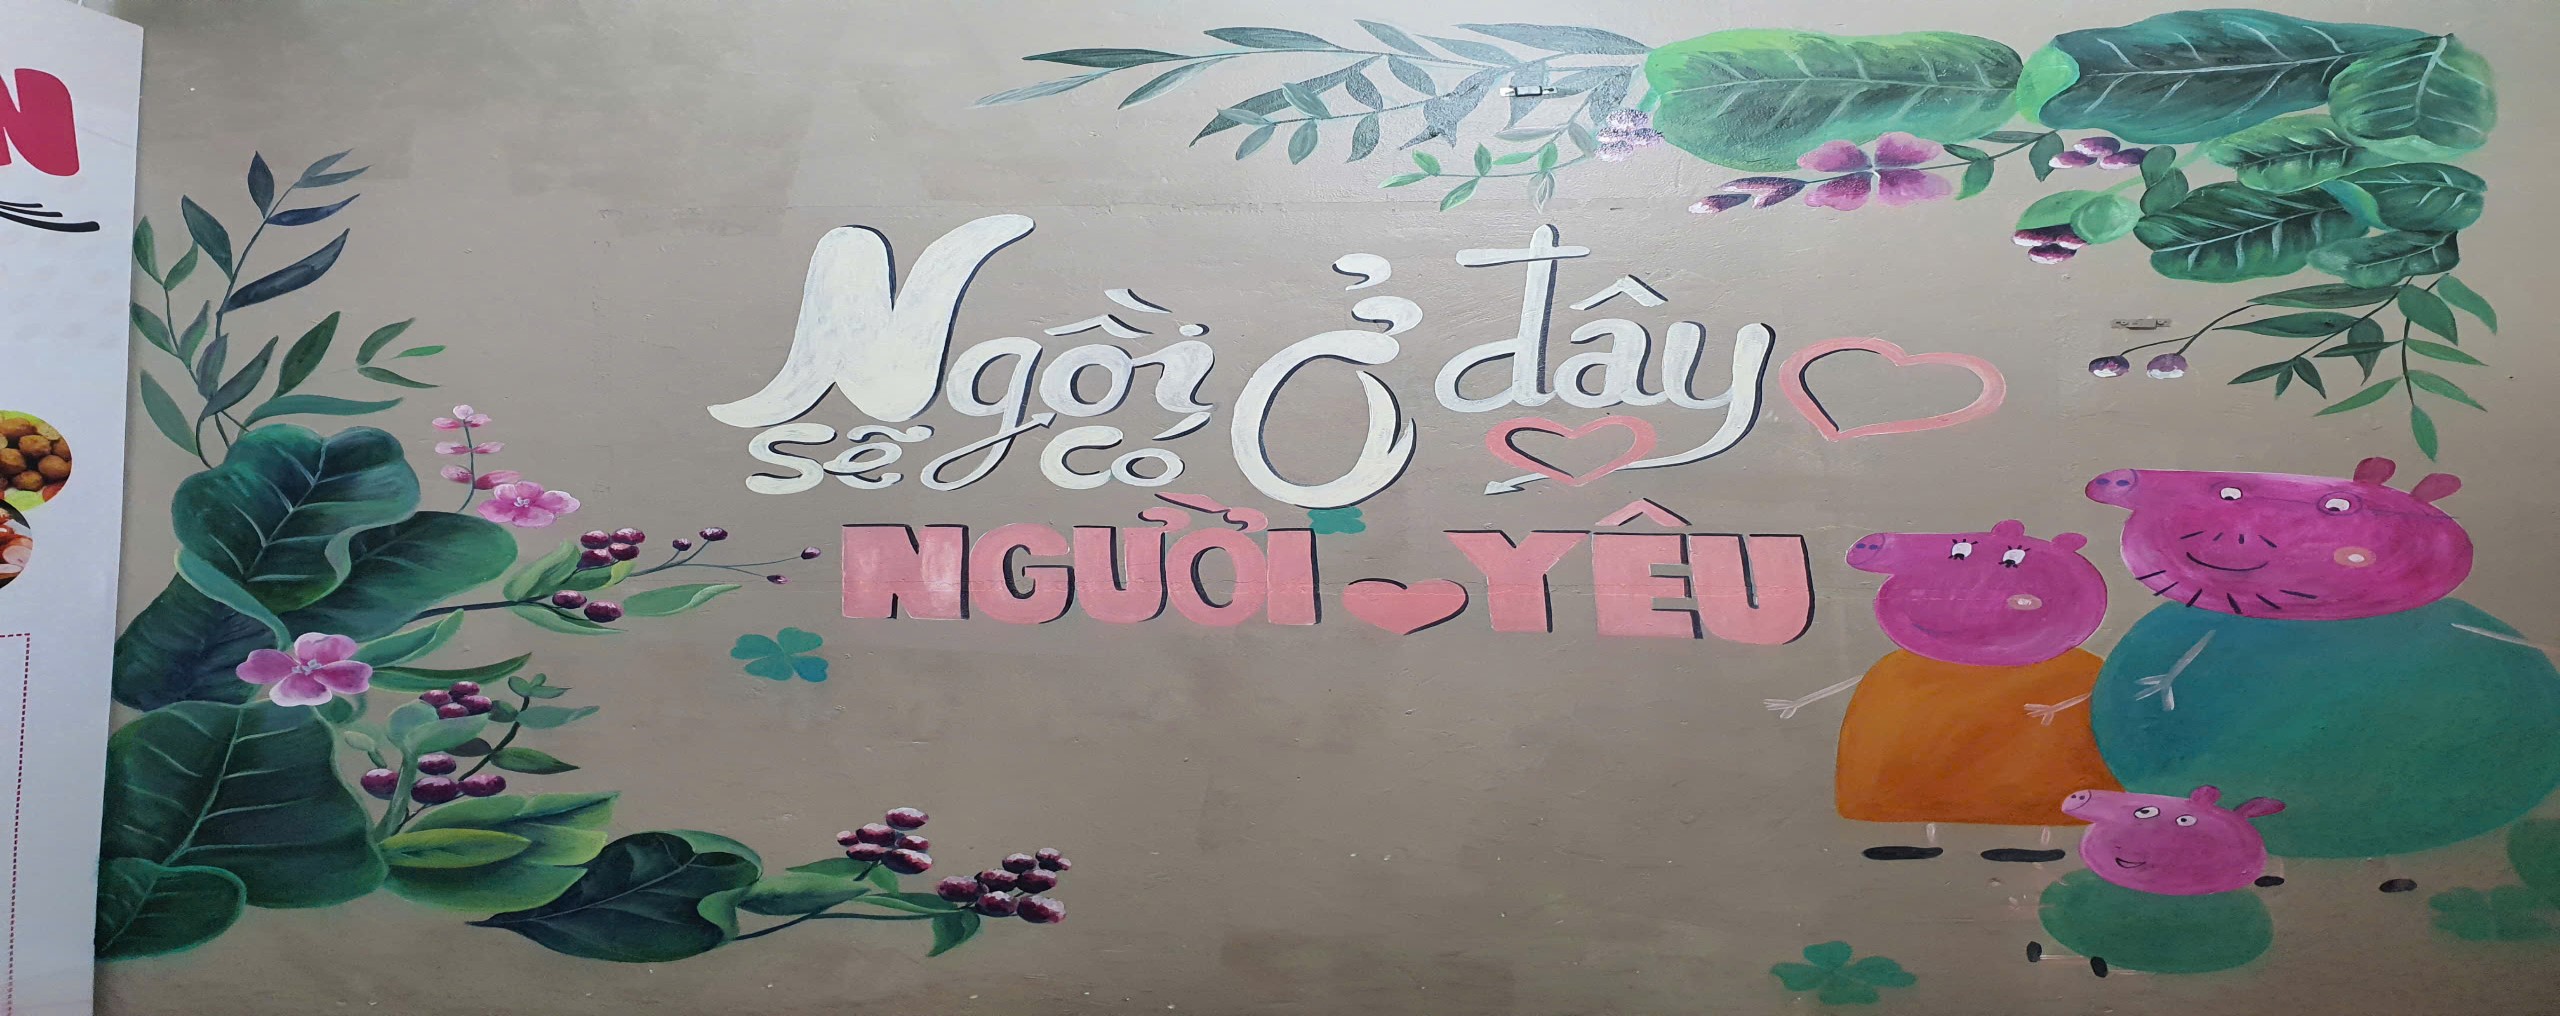 N
Ngồi Ở đây
sẽ có
NGƯỜI YÊU